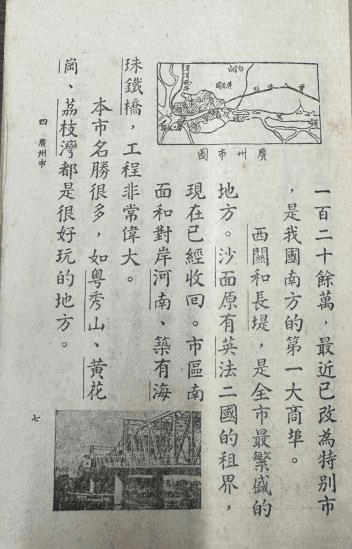 廣州市圖
一百二十餘萬，最近已改為特別市
，是我國南方的第一大商埠。
西關和長堤，是全市最繁盛的
地方。沙面原有英法二國的租界，
現在已經收回。市區南
面和對岸河南、築有海
珠鐵橋，工程非常偉大。
本市名勝很多，如粵秀山、黃花
崗、荔枝灣都是很好玩的地方。
四 廣州市
七